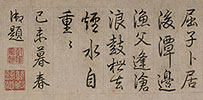 屈子卜居
後潭邊
漁父逢滄
浪鼓枻去
煙水自
重〻
己未暮春
御題